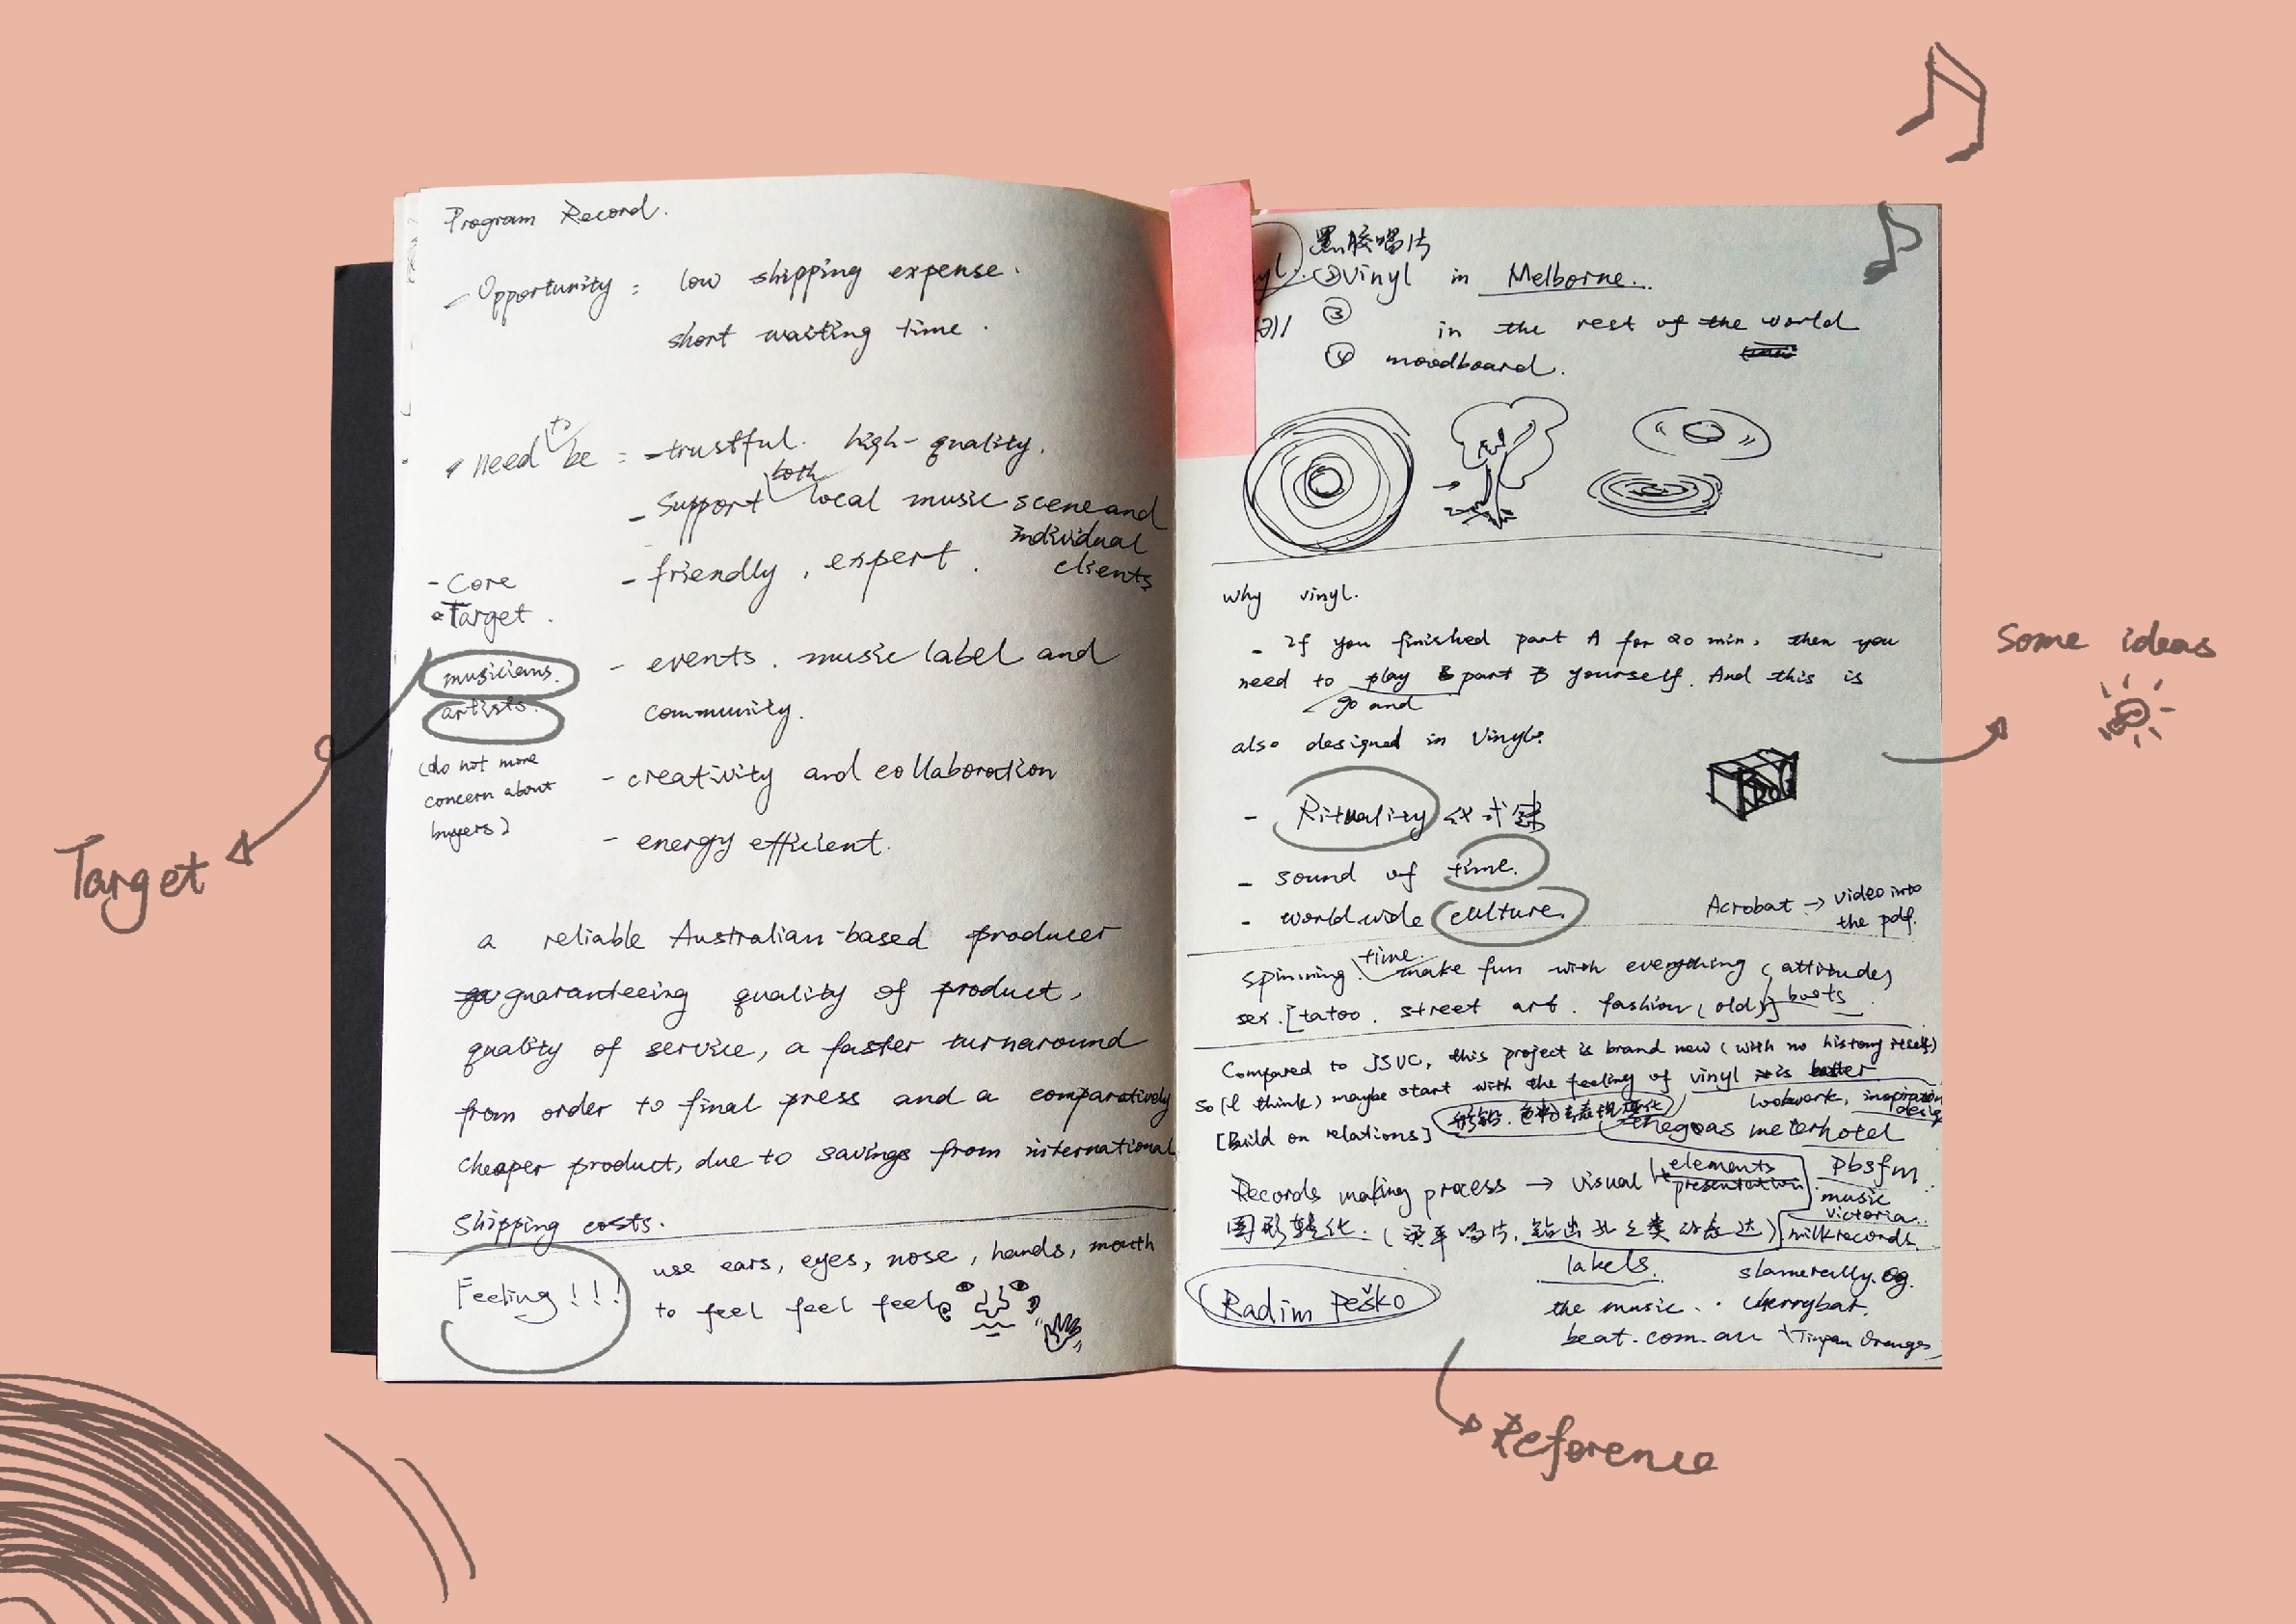 Program Record.
- Opportunity : low shipping expense.
short waiting time.
need to be : - trustful. high-quality.
- Support both local music scene and
individual
clients
- friendly, expert.
- Core
Target.
musicians.
artists.
(do not more
concern about
buyers)
- events. music label and
community.
- creativity and collaboration
- energy efficient.
a reliable Australian-based producer
guaranteeing quality of product,
quality of service, a faster turnaround
from order to final press and a comparatively
cheaper product, due to savings from international
shipping costs.
Feeling!!!
use ears, eyes, nose, hands, mouth
to feel feel feel
黑胶唱片
② Vinyl in Melborne.
③ in the rest of the world
④ moodboard.
why vinyl.
- If you finished part A for 20 min, then you
need to play part B yourself. And this is
go and
also designed in Vinyl.
- Rituality 仪式感
- sound of time.
- worldwide culture.
Acrobat → video into
the pdf.
spinning. time. make fun with everything (attitude)
sex. [tatoo. street art. fashion (old)] boots
Compared to JSVC, this project is brand new (with no history itself)
so (I think) maybe start with the feeling of vinyl
lookwork, inspiration
[Build on relations]
thegasometerhotel
Records making process → visual elements
presentation
pbsfm
music
victoria
图形转化.
milkrecords.
labels.
Radim Peško
the music.
cherrybar.
beat.com.au
Tinpan Oranges
Target
Some ideas
Reference